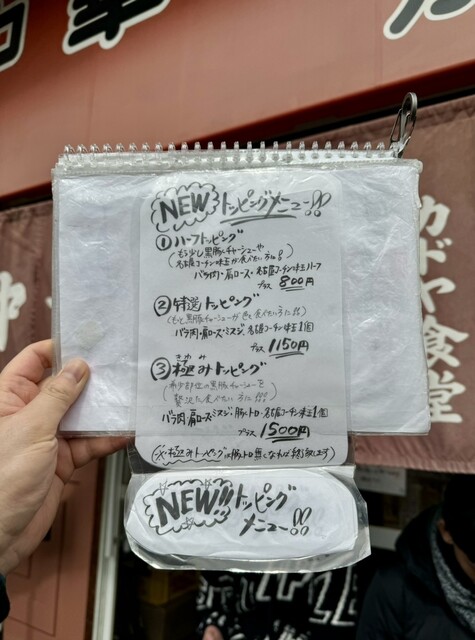 NEW トッピングメニュー!!
① ハーフトッピング
(もう少し黒豚チャーシューや
名古屋コーチン味玉が食べたい方に!)
バラ肉・肩ロース・名古屋コーチン味玉ハーフ
プラス 800円
② 特選トッピング
(もっと黒豚チャーシューが食べたい方に!!)
バラ肉・肩ロース・ミスジ、名古屋コーチン味玉1個
プラス 1150円
きわ み
③ 極みトッピング
(希少部位の黒豚チャーシューを
贅沢に食べたい方に!!!)
バラ肉、肩ロース・ミスジ・豚トロ・名古屋コーチン味玉1個
プラス 1500円
(※極みトッピングは豚トロ無くなれば終了致します)
NEW!! トッピング
メニュー!!
カドヤ食堂